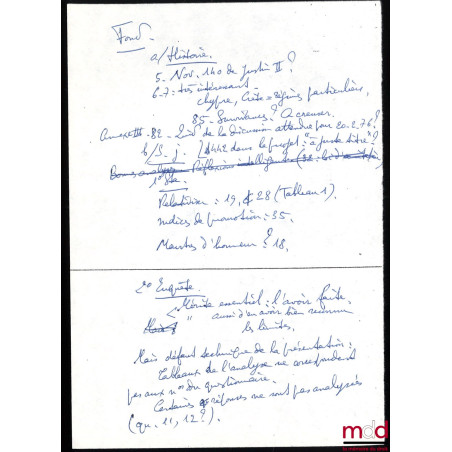 Fond.
a/ Histoire.
5 - Nov. 140 de Justin II ?
6-7 = très intéressant -
chypre, Crète = régimes particuliers,
85 - ? A creuser.
Annexe III - 82 - de la discussion attendre pour 20-2-76 ?
b/ S. j. § 442 dans le projet : "à juste titre" ?
Réflexion intelligente
1° Sta
: 19, § 28 (Tableau 1)
indices de promotion = 35.
Meurtres d'honneur ? 18.
2° Enquête.
< Mérite essentiel : l'avoir faite.
" aussi d'en avoir bien reconnu
les limites.
Mais défaut technique de la présentation :
Tableaux de l'analyse ne correspondent
pas aux nos du questionnaire.
Certaines réponses ne sont pas analysées
(qu. 11, 12 ?).
mdd